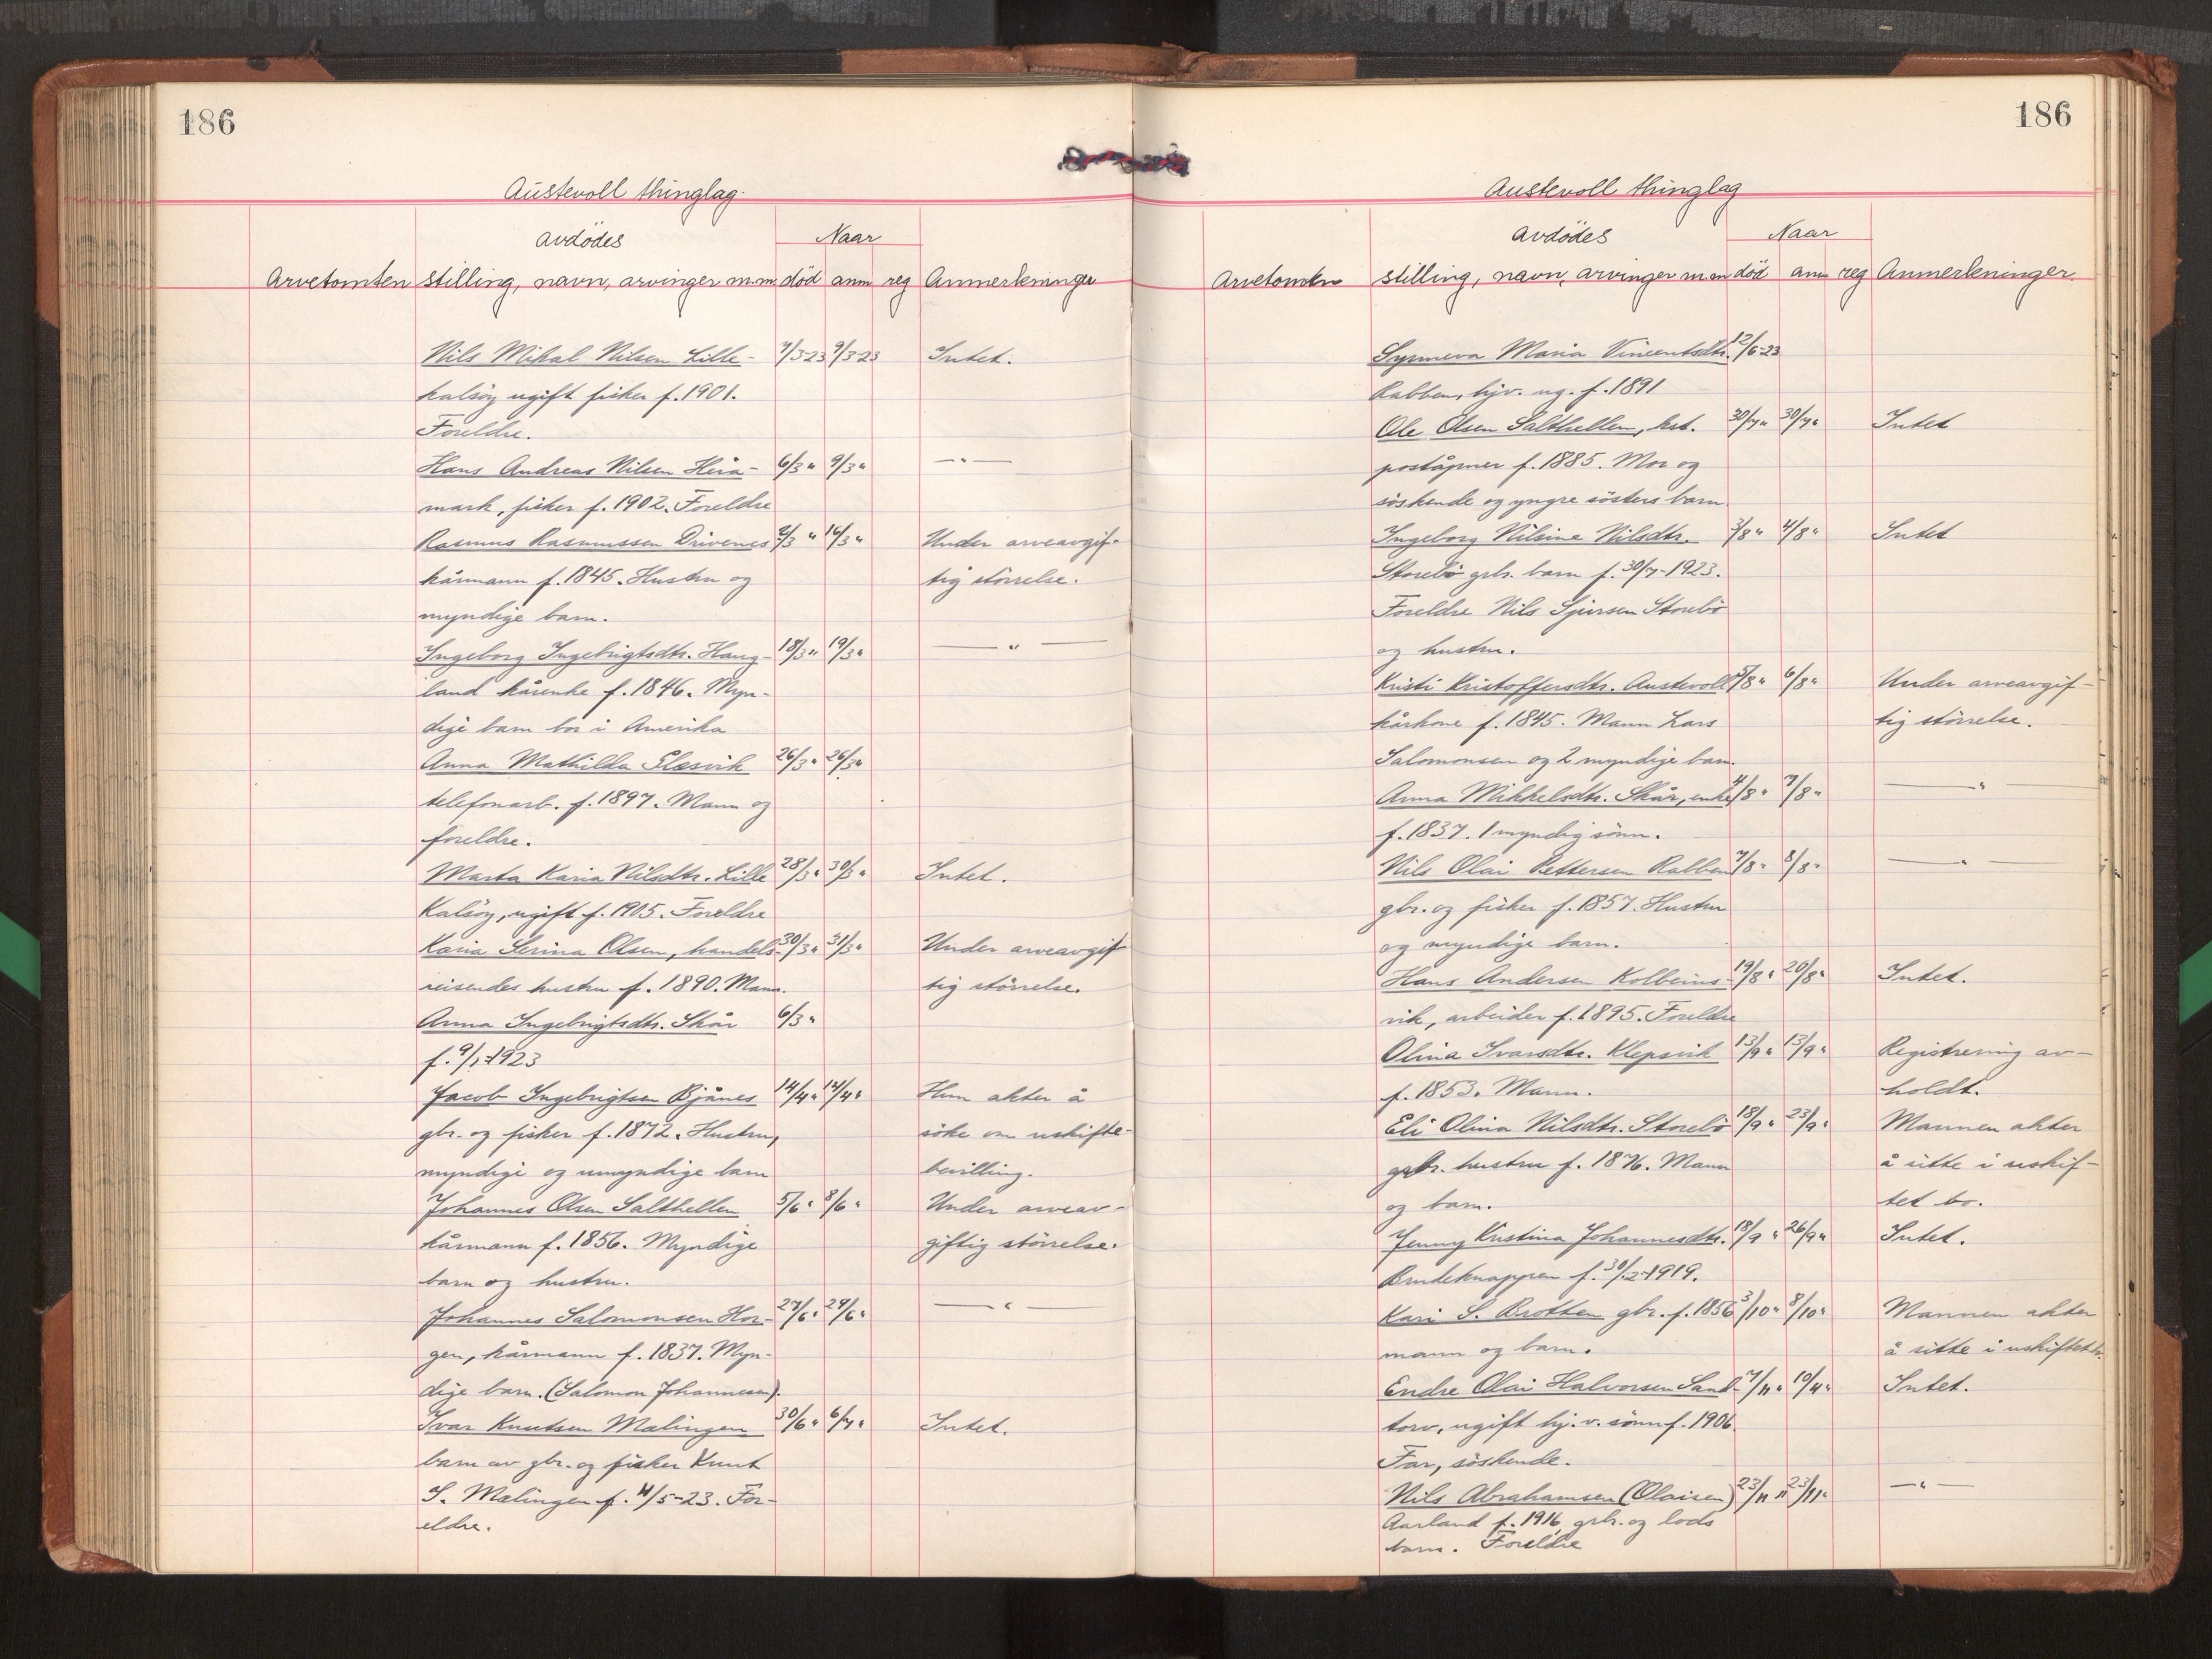 186
Austevoll thinglag.
avdödes
Naar
Arvetomten stilling, navn, arvinger m.m. död anm reg Anmerkninger
Nils Mikal Nilsen Lille- 7/3-23 9/3-23 Intet.
kalsöy ugift fisker f. 1901.
Foreldre.
Hans Andreas Nilsen Heia- 6/3 " 9/3 " — " —
mark, fisker f. 1902. Foreldre
Rasmus Rasmussen Drivenes 2/3 " 16/3 " Under arveavgif-
kårmann f. 1845. Hustru og tig störrelse.
myndige barn.
Ingeborg Ingebrigtsdtr. Haug- 18/3 " 19/3 " — " —
land kårenke f. 1846. Myn-
dige barn bor i Amerika
Anna Mathilda Glesvik 26/3 " 26/3 "
telefonarb. f. 1897. Mann og
foreldre.
Marta Karia Nilsdtr. Lille 28/3 " 30/3 " Intet.
Kalsöy, ugift f. 1905. Foreldre
Karia Serina Olsen, handels- 30/3 " 31/3 " Under arveavgif
reisendes hustru f. 1890. Mann. tig störrelse.
Anna Ingebrigtsdtr. Skår 6/3 "
f. 9/1-1923
Jacob Ingebrigtsen Bjånes 14/4 " 14/4 " Hun akter å
gbr. og fisker f. 1872. Hustru, söke om uskifte-
myndige og umyndige barn bevilling.
Johannes Olsen Salthellen 5/6 " 8/6 " Under arveav-
kårmann f. 1856. Myndige giftig störrelse.
barn og hustru.
Johannes Salomonsen Hor- 27/6 " 29/6 " — " —
gen, kårmann f. 1837. Myn-
dige barn. (Salomon Johannesen).
Ivar Knutsen Mælingen 30/6 " 6/7 " Intet.
barn av gbr. og fisker Knut
S. Mælingen f. 4/5-23. For-
eldre.
186
Austevoll thinglag
avdödes
Naar
Arvetomten stilling, navn, arvinger m.m död anm reg Anmerkninger.
Synneva Maria Vincentsdtr. 12/6-23
Rabben, hjv. ug. f. 1891
Ole Olsen Salthellen, hst. 30/7 " 30/7 " Intet
poståpner f. 1885. Mor og
söskende og yngre sösters barn.
Ingeborg Nilsine Nilsdtr. 3/8 " 4/8 " Intet
Storebö grbr. barn f. 30/7-1923.
Foreldre Nils Sjursen Storebö
og hustru.
Kristi Kristoffersdtr. Austevoll 5/8 " 6/8 " Under arveavgif-
kårkone f. 1845. Mann Lars tig störrelse.
Salomonsen og 2 myndige barn.
Anna Mikkelsdtr. Skår, enke 4/8 " 7/8 " — " —
f. 1837. 1 myndig sönn.
Nils Olai Pettersen Rabben 7/8 " 8/8 " — " —
gbr. og fisker f. 1857. Hustru
og myndige barn.
Hans Andersen Kolbeins- 19/8 " 20/8 " Intet.
vik, arbeider f. 1895. Foreldre
Olina Ivarsdtr. Klepsvik 13/9 " 13/9 " Registrering av-
f. 1853. Mann. holdt.
Eli Olina Nilsdtr. Storebö 18/9 " 23/9 " Mannen akter
grbr. hustru f. 1876. Mann å sitte i uskif-
og barn. tet bo.
Jenny Kristina Johannesdtr. 18/9 " 26/9 " Intet.
Brudeknappen f. 30/2-1919.
Kari S. Brotten gbr. f. 1856 3/10 " 8/10 " Mannen akter
mann og barn. å sitte i uskiftet bo.
Endre Olai Halvorsen Sand- 7/11 " 10/11 " Intet.
torv, ugift hj. v. sönn f. 1906.
Far, söskende.
Nils Abrahamsen (Olaisen) 23/11 " 23/11 " — " —
Aarland f. 1916, grbr. og lods
barn. Foreldre